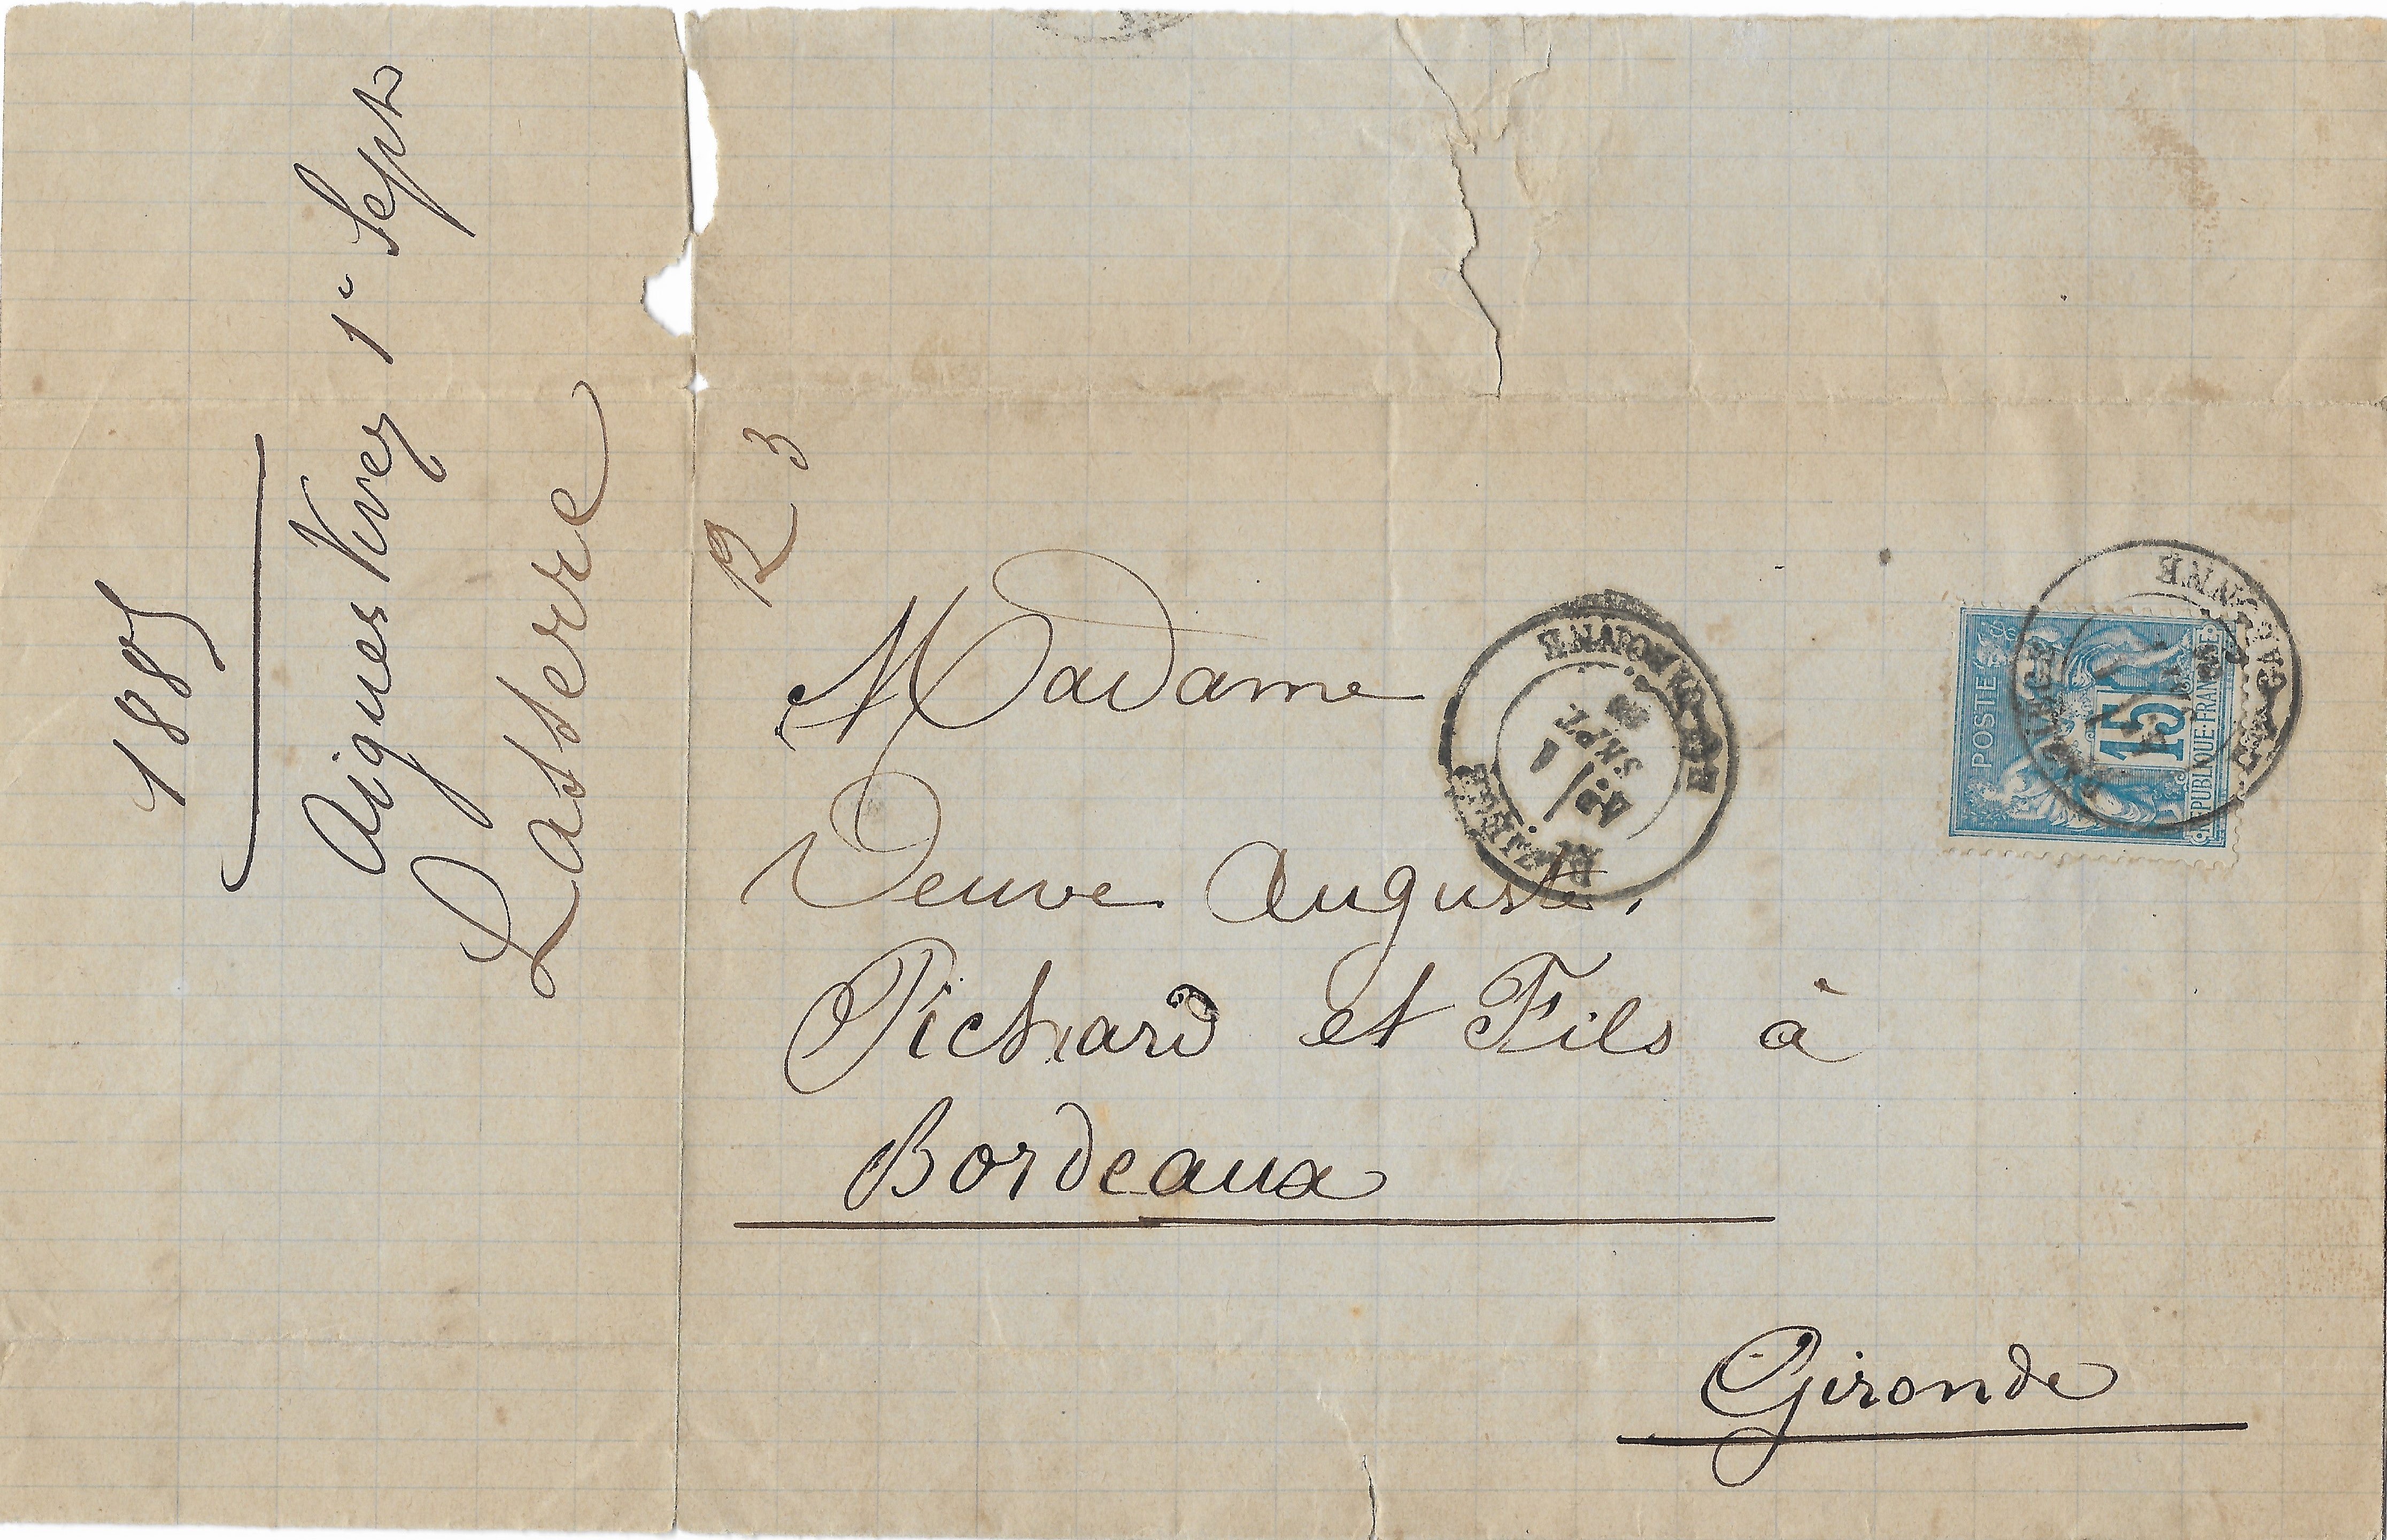 1885
Aigues Vives 1r Sept
Lasserre
R 3
Madame
Veuve Auguste
Pichard et Fils à
Bordeaux
Gironde
POSTES
15
REPUBLIQUE FRANÇAISE